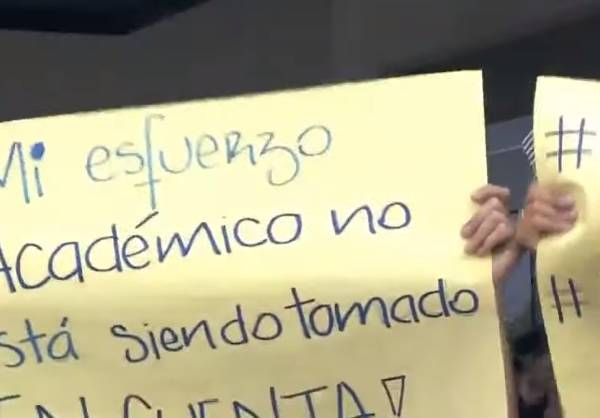 Mi esfuerzo
Académico no
está siendo tomado
EN CUENTA!
#
#